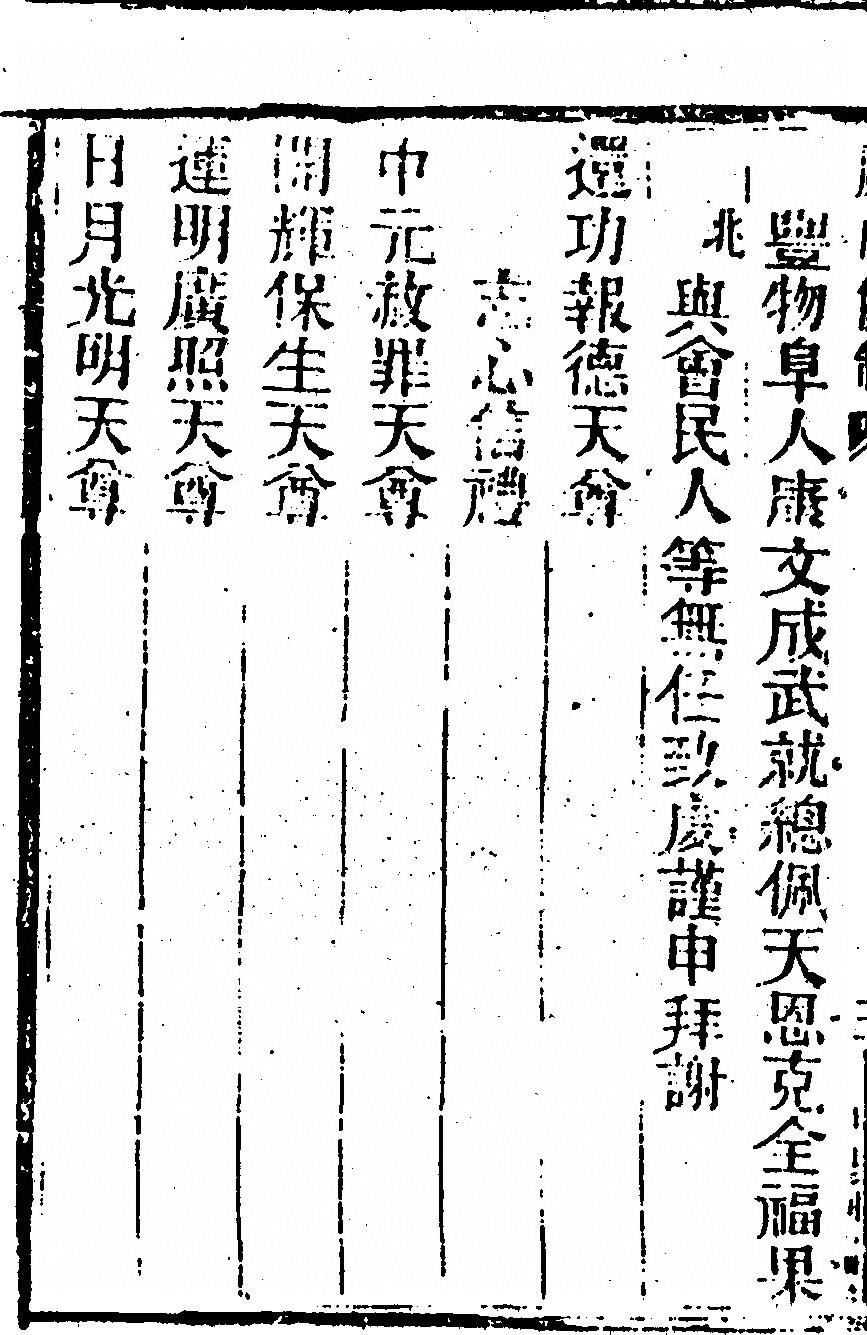 豐物阜人康文成武就總佩天恩克全福果
北
與會民人等無任致虔謹申拜謝
還功報德天尊
志心信禮
中元赦罪天尊
開輝保生天尊
運明廣照天尊
日月光明天尊